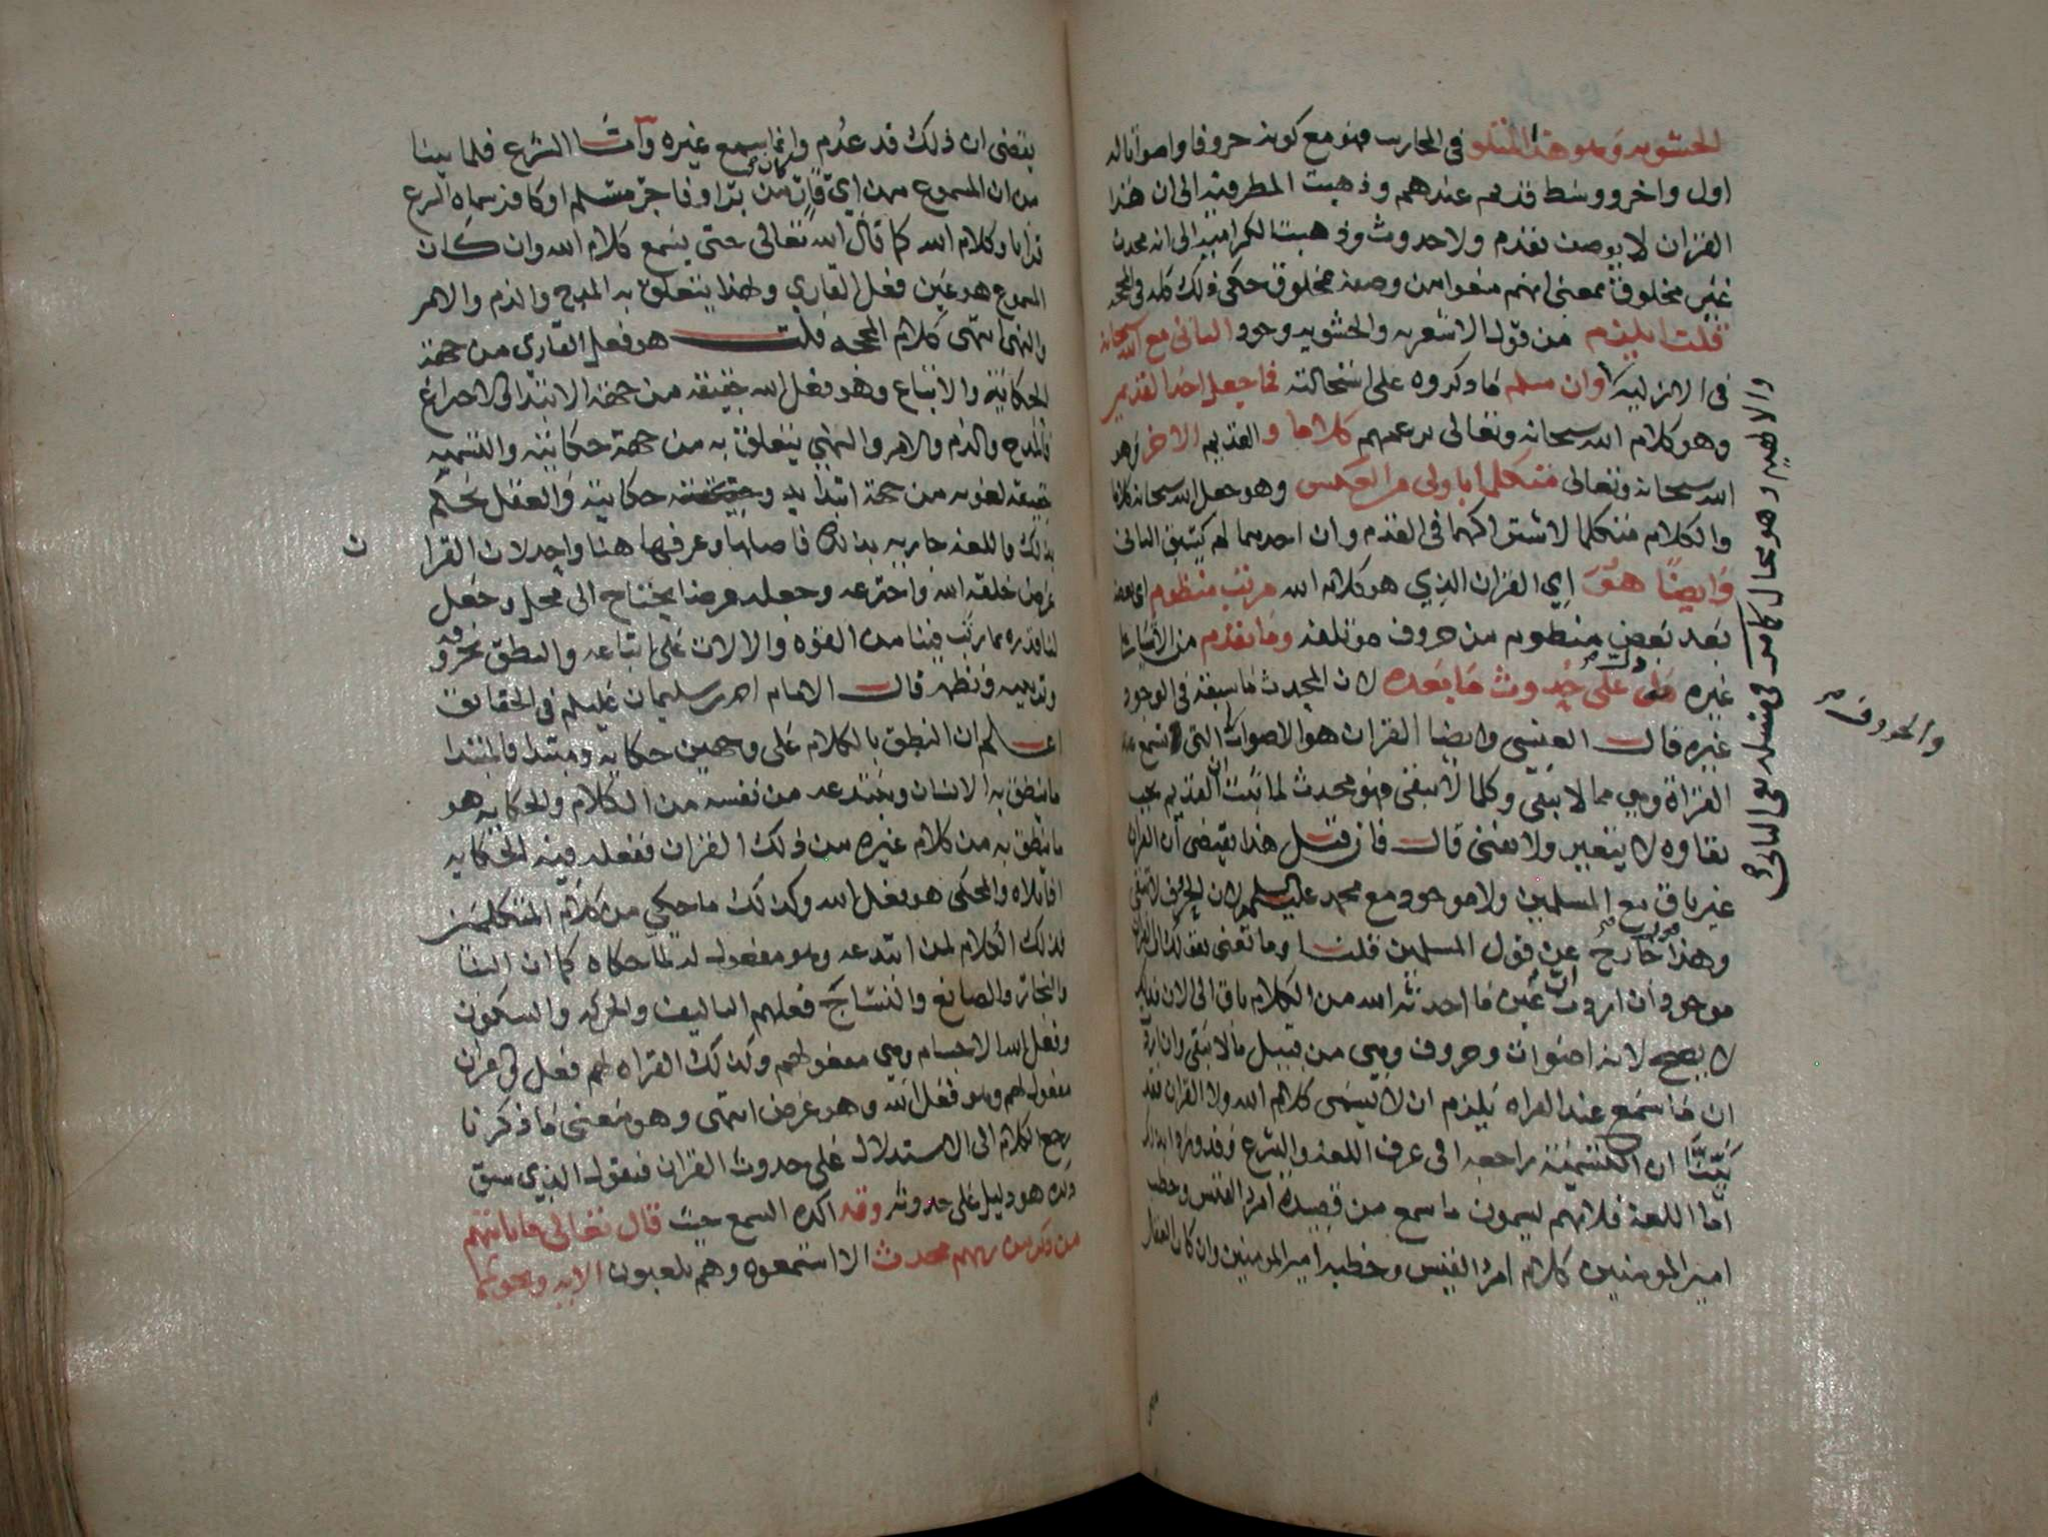 الحشويه وهو هذا المتلو في المحاريب فهو مع كونه حروفا واصواتا له
اول واخر ووسط قديم عندهم وذهبت المطرفية الى ان هذا
القران لا يوصف بقدم ولا حدوث وذهبت الكراميه الى انه محدث
غير مخلوق بمعنى انهم منعوا من وصفه بمخلوق حكى ذلك كله في المحجه
قلت ايلزم من قول الاشعريه والحشويه وجود الثاني مع الله سبحانه
في الازلية وان سلم ما ذكروه على استحالته فما جعل احد القديمين
وهو كلام الله سبحانه وتعالى بزعمهم كلاما والقديم الاخر وهو
الله سبحانه وتعالى متكلما باولى من العكس وهو جعل الله سبحانه كلاما
والكلام متكلما لاشتراكهما في القدم وان احدهما لم يسبق الثاني
وايضا هو اي القران الذي هو كلام الله مرتب منظوم اي بعضه
بعد بعض منظوم من حروف مولفه وما تقدم من الاشيا على
غيره دل على حدوث ما بعده لان المحدث ما سبقه في الوجود
غيره قال العنسي وايضا القران هو الاصوات التي تسمع عند
القراة وهي مما لا يبقى وكلما لا يبقى فهو محدث لما ثبت ان القديم يجب
بقاوه لا يتغير ولا يفنى قال فان قيل هذا يقتضي ان القران
غير باق مع المسلمين ولا موجود مع محمد عليه السلم لان الحروف لا تبقى
وهذا خروج عن قول المسلمين قلنا وما تعنى بقولك ان القران
موجود ان اردت ان عين ما احدثه الله من الكلام باق الى الان فذلك
لا يصح لانه اصوات وحروف وهي من قبيل ما لا يبقى وان اردت
ان ما سمع عند القراه يلزم ان لا يسمى كلام الله ولا القران فقد
بينا ان التسمية راجعه الى عرف اللغه والشرع وقد وردا بذلك
اما اللغة فلانهم يسمون ما سمع من قصيدة امرء القيس وخطب
امير المومنين كلام امرء القيس وخطبه امير المومنين وان كان العقل
والالهيه وهو محال كما سياتي في مسله نفي الثاني
والحدوث
يقتضي ان ذلك قد عدم وانما يسمع غيره واما الشرع فلما بينا
من ان المسموع من اي قار كان من بر او فاجر مسلم او كافر سماه الشرع
قرانا وكلام الله كما قال الله تعالى حتى يسمع كلام الله وان كان
المسموع هو عين فعل القاري ولهذا يتعلق به المدح والذم والامر
والنهي انتهى كلام المحجه قلت هو فعل القاري من جهة
الحكاية والاتباع وهو فعل الله حقيقه من جهة الابتدا والاختراع
فالمدح والذم والامر والنهي يتعلق به من جهة حكايته والتسميه
حقيقه لغويه من جهة ابتدايه وحقيقته حكاية والعقل يحكم
بذلك واللغه جاريه بذلك فاصلها وعرفها هنا واحد لان القران
عرض خلقه الله واخترعه وجعله عرضا يحتاج الى محل وجعل
لنا قدره بما ركب فينا من القوه والالات على اتباعه والنطق بحروفه
وترتيبه ونظمه قال الامام احمد بن سليمان عليلم في الحقايق
اعلم ان النطق بالكلام على وجهين حكايه ومبتدا فالمبتدا
ما ينطق به الانسان ويبتدعه من نفسه من الكلام والحكايه هو
ما ينطق به من كلام غيره من ذلك القران ففعله فيه الحكايه
اذا تلاه والمحكي هو فعل الله وكذلك ما حكي من كلام المتكلمين
فذلك الكلام لمن ابتدعه وهو مفعول له لما حكاه كما ان البنا
والنجار والصايغ والنساج فعلهم التاليف والحركه والسكون
وفعل الله الاجسام وهي مفعولهم وكذلك القراه لهم فعل والقران
مفعول لهم وهو فعل الله وهو عرض انتهى وهو معنى ما ذكرنا
رجع الكلام الى الاستدلال على حدوث القران فنقول الذي سبق
ذكره هو دليل على حدوثه وقد اكده السمع حيث قال تعالى ما ياتيهم
من ذكر من ربهم محدث الا استمعوه وهم يلعبون الايه ونحوها
ن